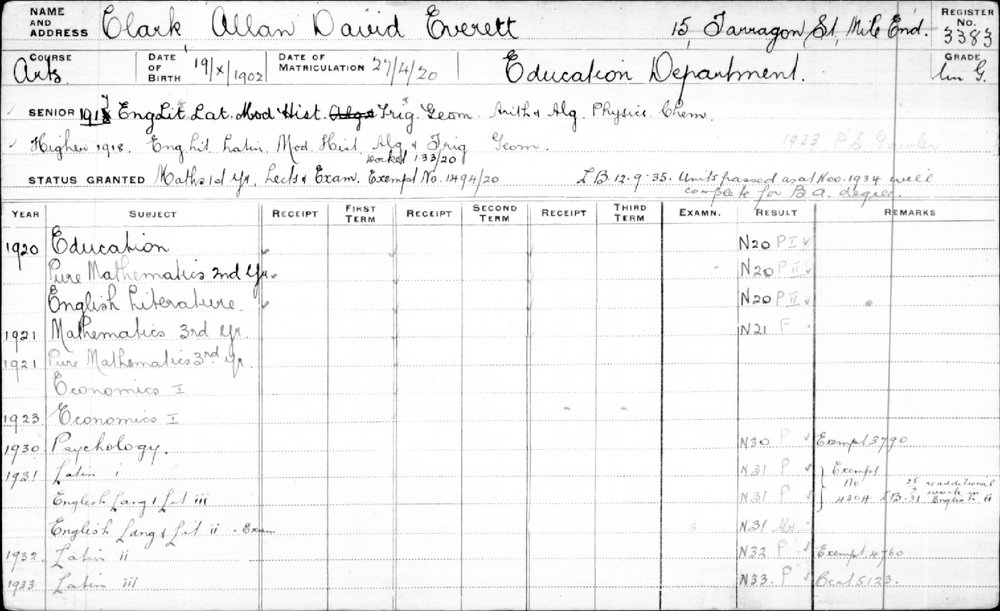 NAME AND ADDRESS Clark, Allan David Everett 15, Tarragon St, Mile End. REGISTER No. 3383
COURSE Arts DATE OF BIRTH 19/X/1902 DATE OF MATRICULATION 27/4/20 Education Department. GRADE
SENIOR Eng Lit Lat Mod Hist Trig Geom Arith & Alg Physics Chem
Higher 1918. Eng Lit Latin Mod. Hist Alg & Trig Geom. 1933 P.S. Gawler
Docket 133/20
STATUS GRANTED Maths 1st Yr. Lects & Exam. Exempt No. 1494/20 L.B. 12-9-35. Units passed as at Nov. 1934 will
complete for B.A. degree.
YEAR SUBJECT RECEIPT FIRST TERM RECEIPT SECOND TERM RECEIPT THIRD TERM EXAMN. RESULT REMARKS
1920 Education N20 P I
Pure Mathematics 2nd Yr. N20 P II
English Literature. N20 P II
1921 Mathematics 3rd Yr. N21 F
1921 Pure Mathematics 3rd Yr.
Economics I
1923 Economics I
1930 Psychology. N30 P Exempt 3790
1931 Latin i N31 P Exempt
English Lang & Lit iii N31 P No 4804 L.B. 31 re additional work in English ii
English Lang & Lit ii - Exam N31
1932 Latin ii N32 P Exempt 4760
1933 Latin iii N33. P 5123.